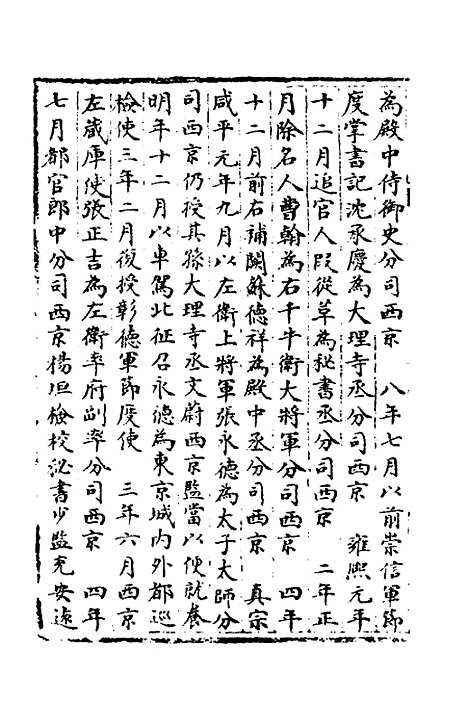 為殿中侍御史分司西京　八年七月以前崇信軍節
度掌書記沈承慶為大理寺丞分司西京　雍熙元年
十二月追官人段從革為秘書丞分司西京　二年正
月除名人曹翰為右千牛衛大將軍分司西京　四年
十二月前右補闕蘇德祥為殿中丞分司西京　真宗
咸平元年九月以左衛上將軍張永德為太子太師分
司西京仍授其孫大理寺丞文蔚西京監當以便就養
明年十二月以車駕北征召永德為東京城內外都巡
檢使三年二月復授彰德軍節度使　三年六月西京
左藏庫使張正吉為左衛率府副率分司西京　四年
七月都官郎中分司西京楊坦檢校祕書少監充安遠